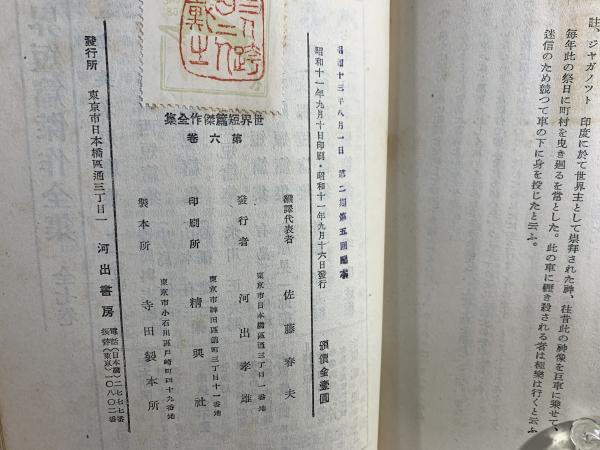 註、ジャガノツト 印度に於て世界主として崇拜された神、往昔此の神像を巨車に乘せて、
毎年此の祭日に町村を曳き廻るを常とした。此の車に轢き殺される者は極樂は行くと云ふ、
迷信のため競つて車の下に身を投じたと云ふ。
昭和十三年八月一日 第二期第五回配本
昭和十一年九月十日印刷・昭和十一年九月十六日發行
頒價金壹圓
世界短篇傑作全集
第六卷
飜譯代表者 佐藤春夫
東京市日本橋區通三丁目一番地
發行者 河出孝雄
東京市神田區錦町三丁目十一番地
印刷所 精興社
東京市小石川區戸崎町四十九番地
製本所 寺田製本所
發行所 東京市日本橋區通三丁目一 河出書房
電話(日本橋)二七七七番
振替(東京)一〇八〇二番